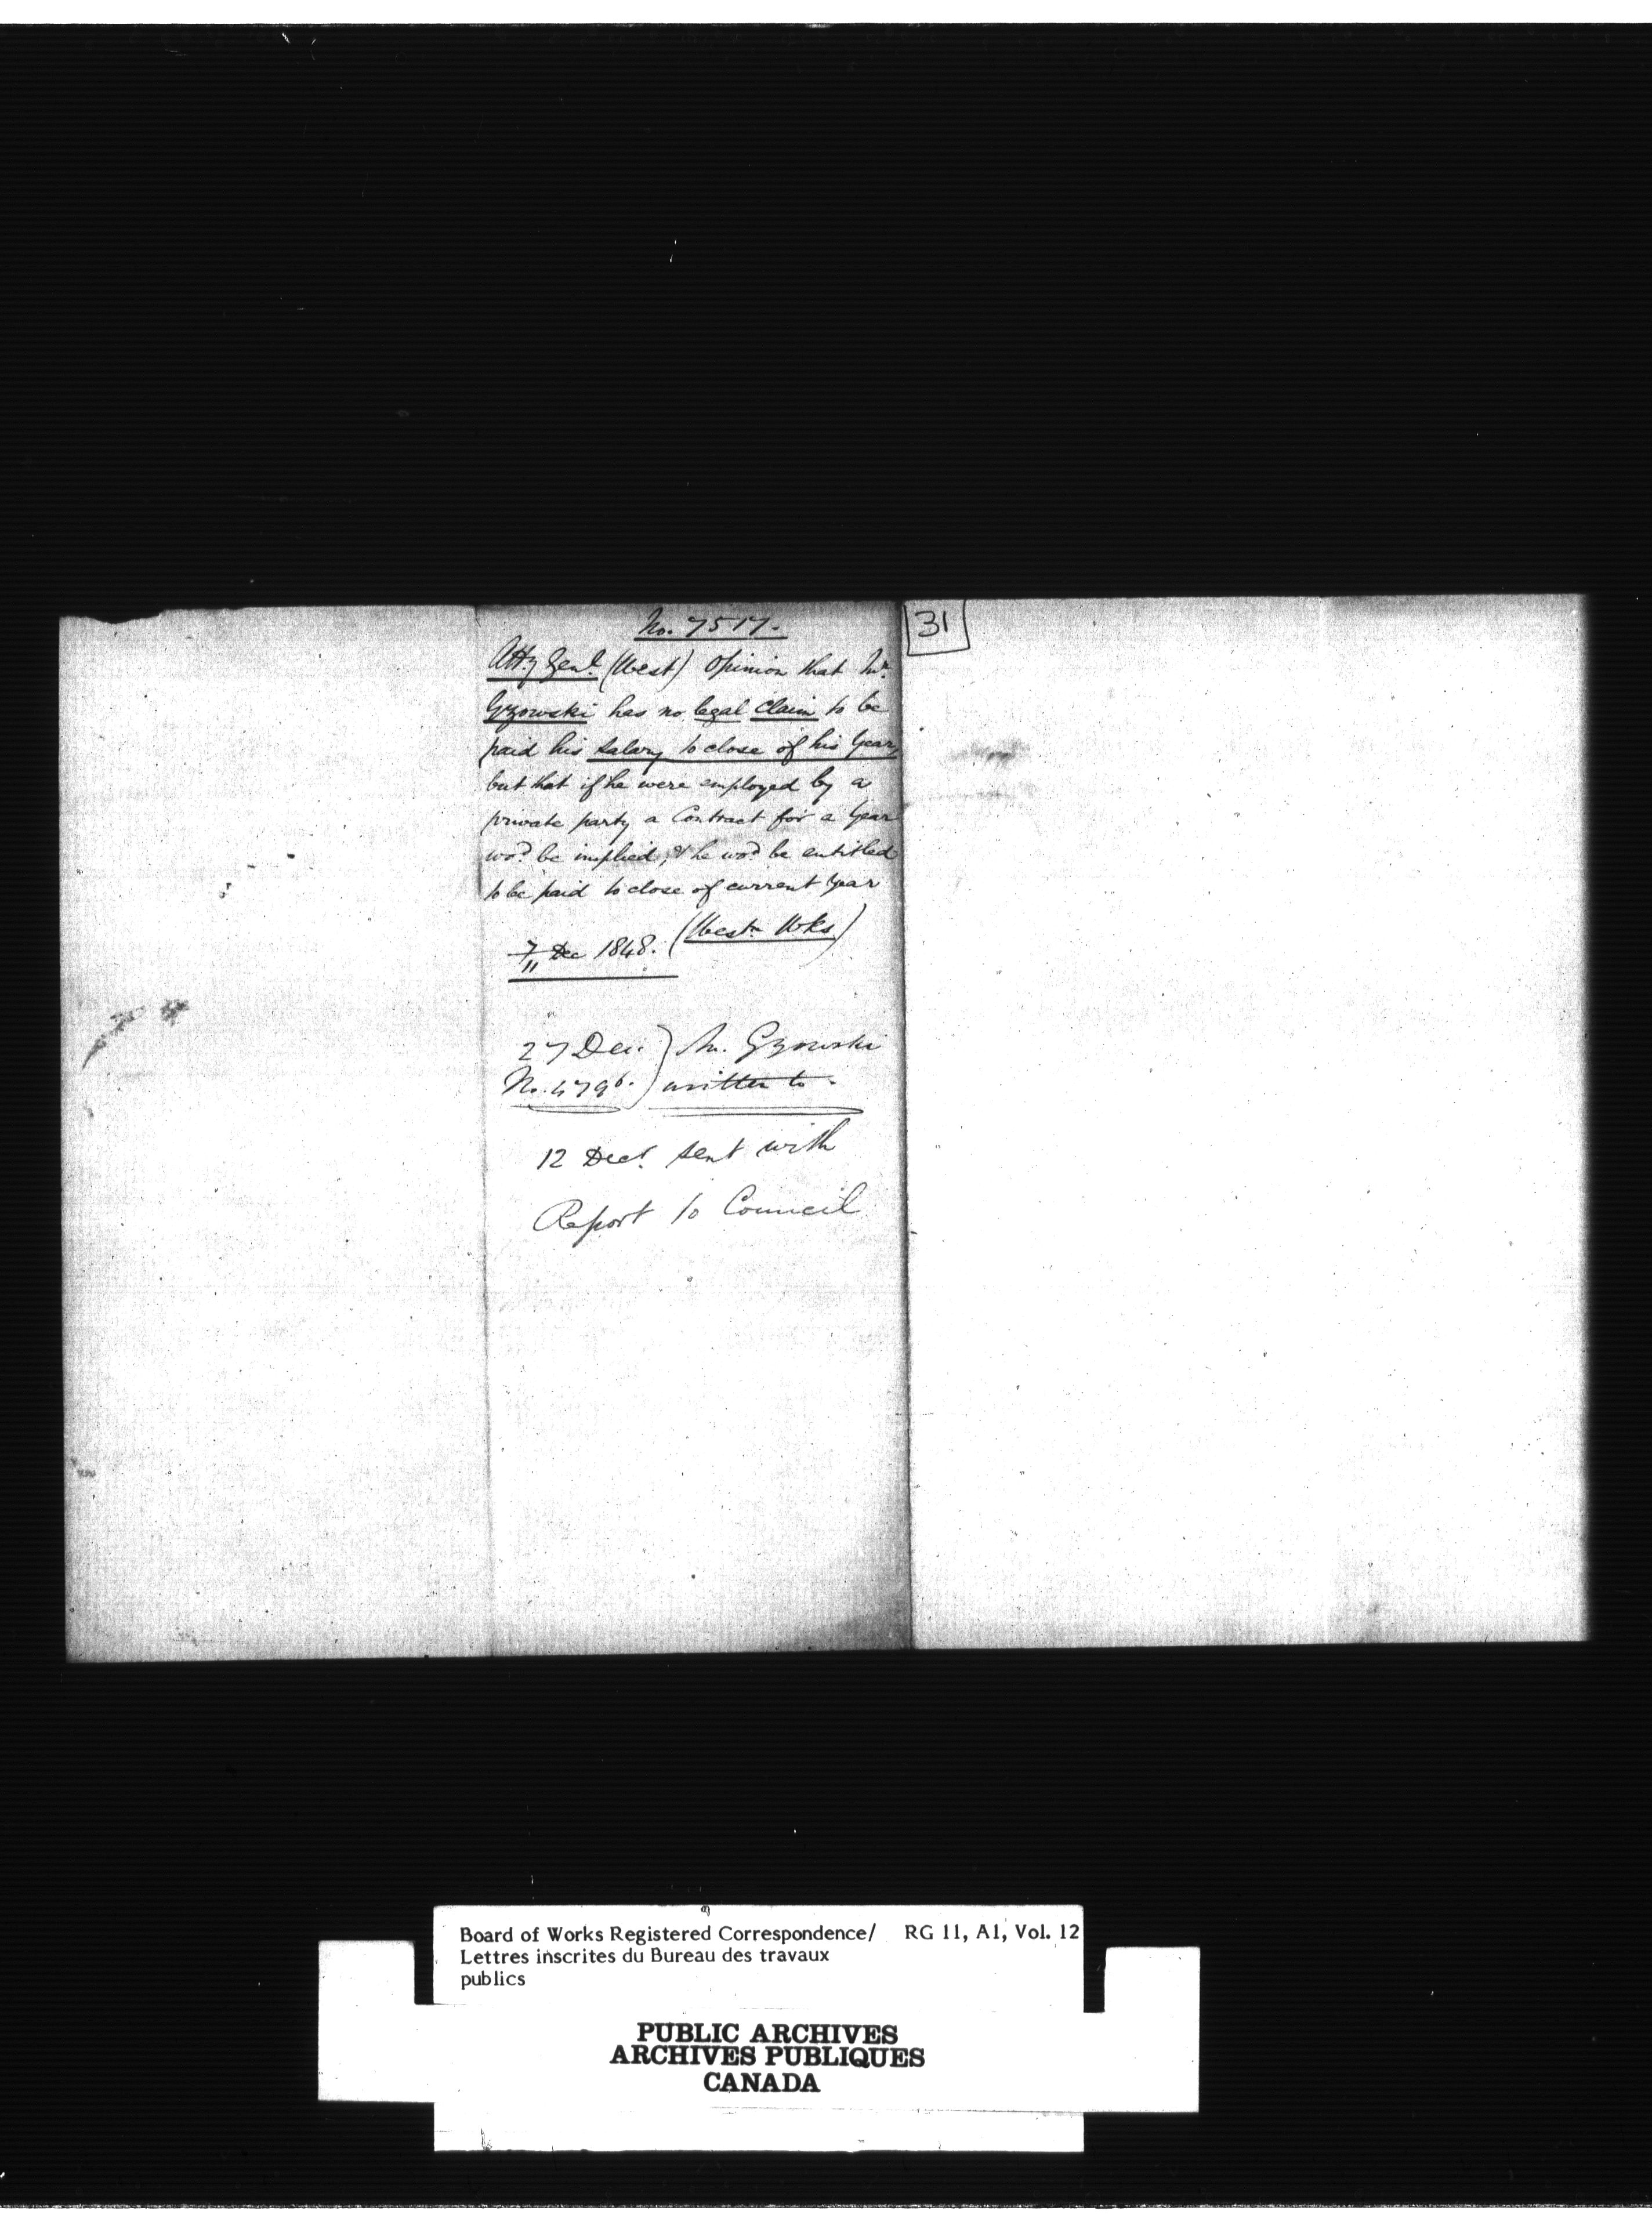 No. 7517.
Atty Genl. (West) Opinion that Mr.
Gzowski has no legal claim to be
paid his salary to close of his Year
but that if he were employed by a
private party a Contract for a Year
wod be implied, & he wod be entitled
to be paid to close of current Year
(Westn Wks)
7/11 Dec 1848.
27 Dec. ) Mr. Gzowski
No. 4796. ) written to.
12 Decr. sent with
Report to Council
31
Board of Works Registered Correspondence/ RG 11, A1, Vol. 12
Lettres inscrites du Bureau des travaux
publics
PUBLIC ARCHIVES
ARCHIVES PUBLIQUES
CANADA